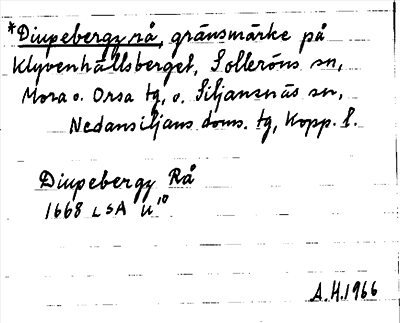 *Diupebergz rå, gränsmärke på
Klyvenhällsberget, Solleröns sn,
Mora o. Orsa tg, o. Siljansnäs sn,
Nedansiljans doms. tg, Kopp. l.
Diupebergz Rå
1668 LSA U¹⁰
A.H. 1966